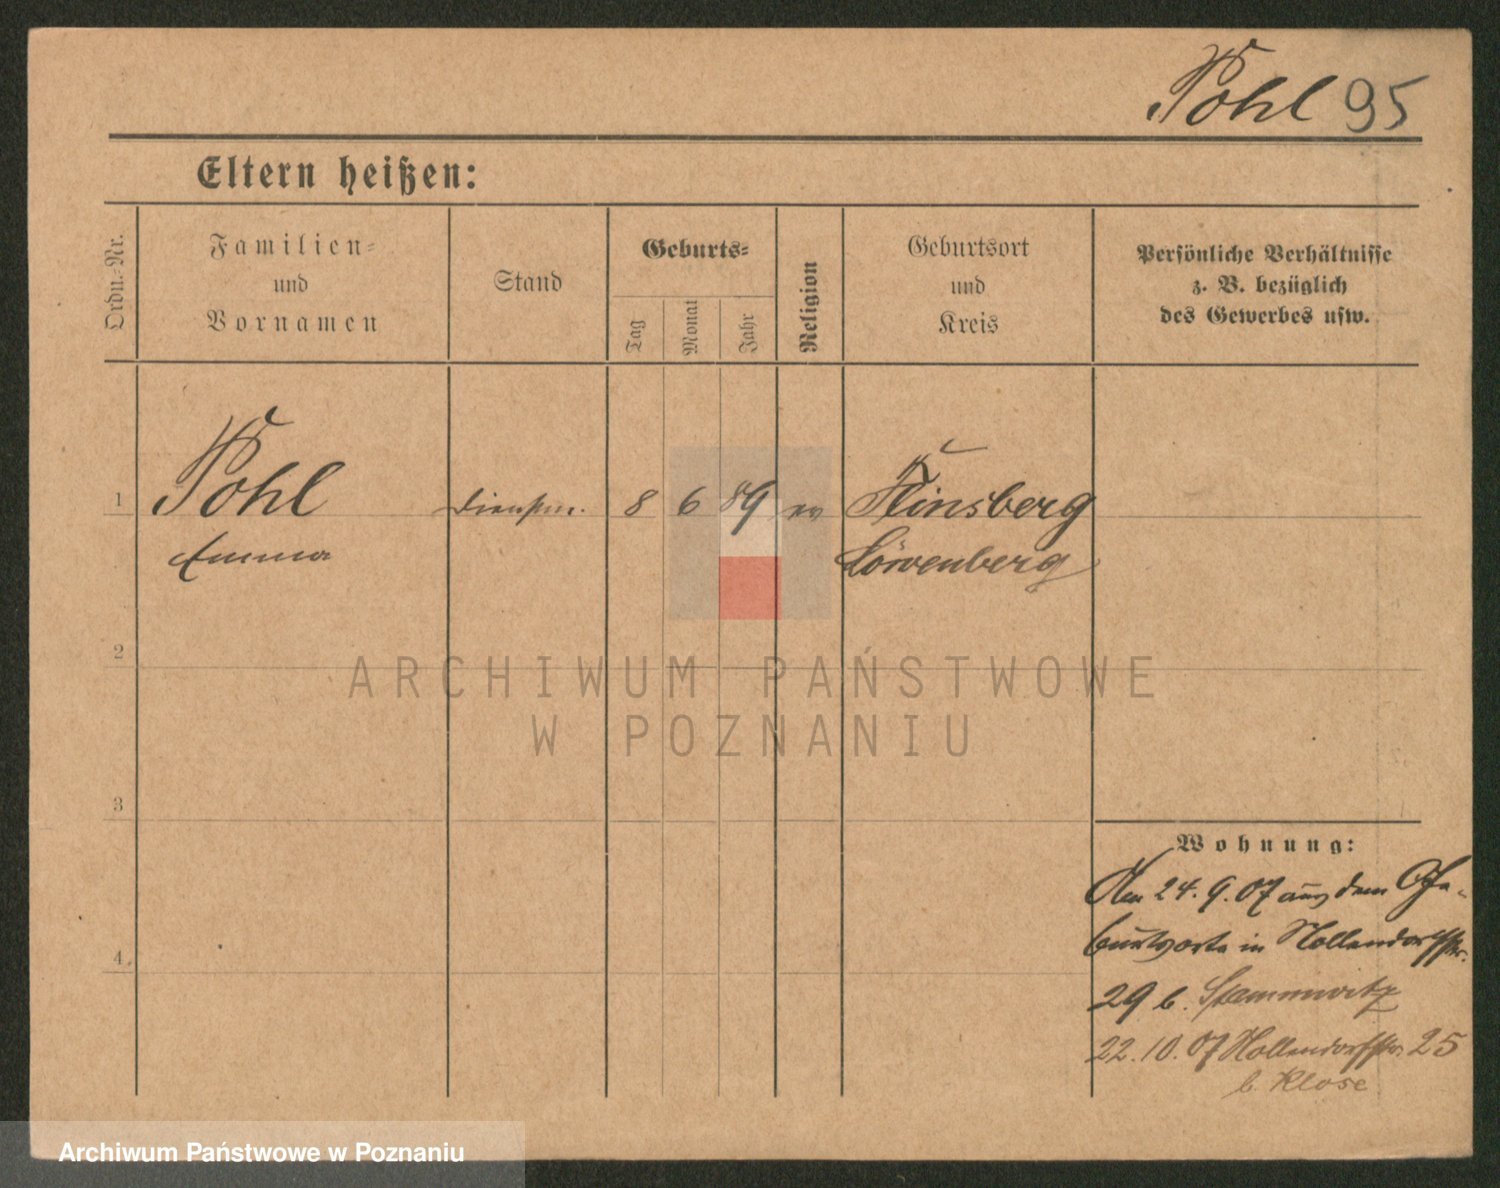 Pohl 95
Eltern heißen:
Ordn.-Nr.
Familien-
und
Vornamen
Stand
Geburts-
Tag
Monat
Jahr
Religion
Geburtsort
und
Kreis
Persönliche Verhältnisse
z. B. bezüglich
des Gewerbes usw.
1 Pohl Dienstm. 8 6 89 ev Flinsberg
Emma Löwenberg
2
ARCHIWUM PAŃSTWOWE
W POZNANIU
3
Wohnung:
Den 24. 9. 07 aus dem Ge-
burtsorte in Nollendorfstr.
4
29 b. Stammwitz
22. 10. 07 Nollendorfstr. 25
b. Klose
Archiwum Państwowe w Poznaniu